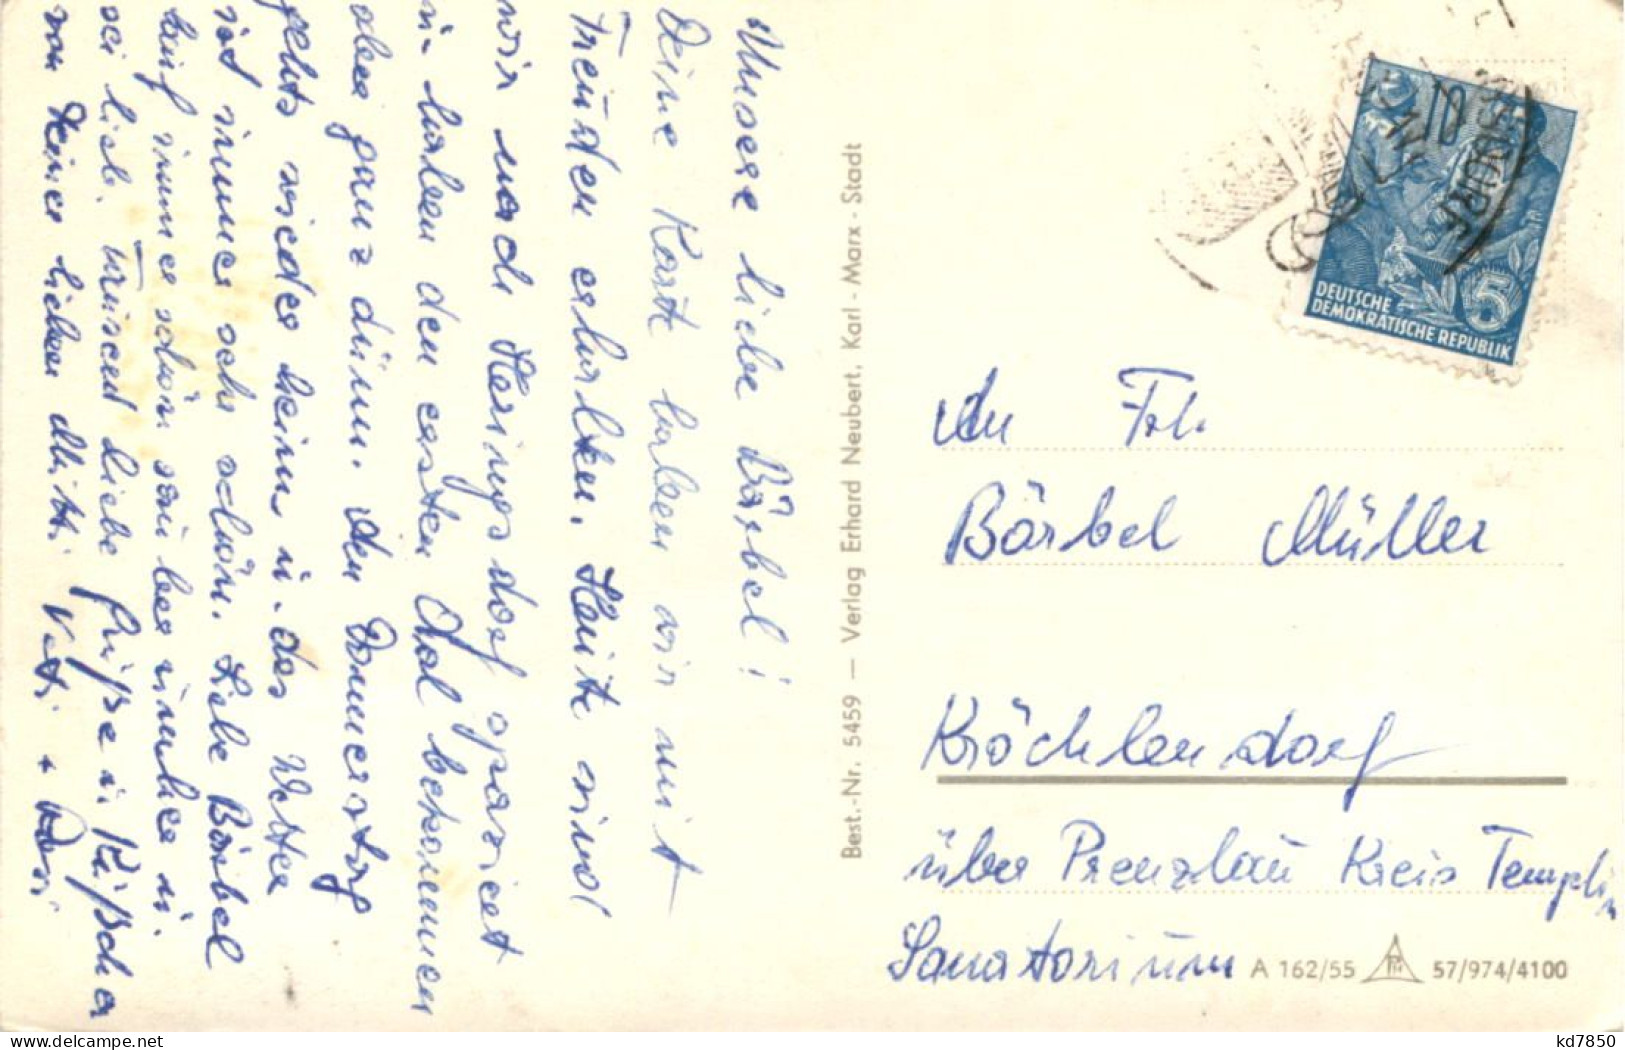 Unsere liebe Bärbel!
Deine Karte haben wir mit
Freuden erhalten. Heute sind
wir nach Heringsdorf spaziert
u. haben den ersten Aal bekommen
aber ganz dünn. Am Donnerstag
gehts wieder heim u. das Wetter
ist immer sehr schön. Liebe Bärbel
immer schön
sei lieb. Tausend liebe Grüße u. Küßchen
von Deiner lieben Mutti Vati +
Best.-Nr. 5459 — Verlag Erhard Neubert, Karl-Marx-Stadt
10
DEUTSCHE
DEMOKRATISCHE REPUBLIK
5
An Frl.
Bärbel Müller
Kröchlendorf
über Prenzlau Kreis Templin
Sanatorium
A 162/55 57/974/4100
kd7850